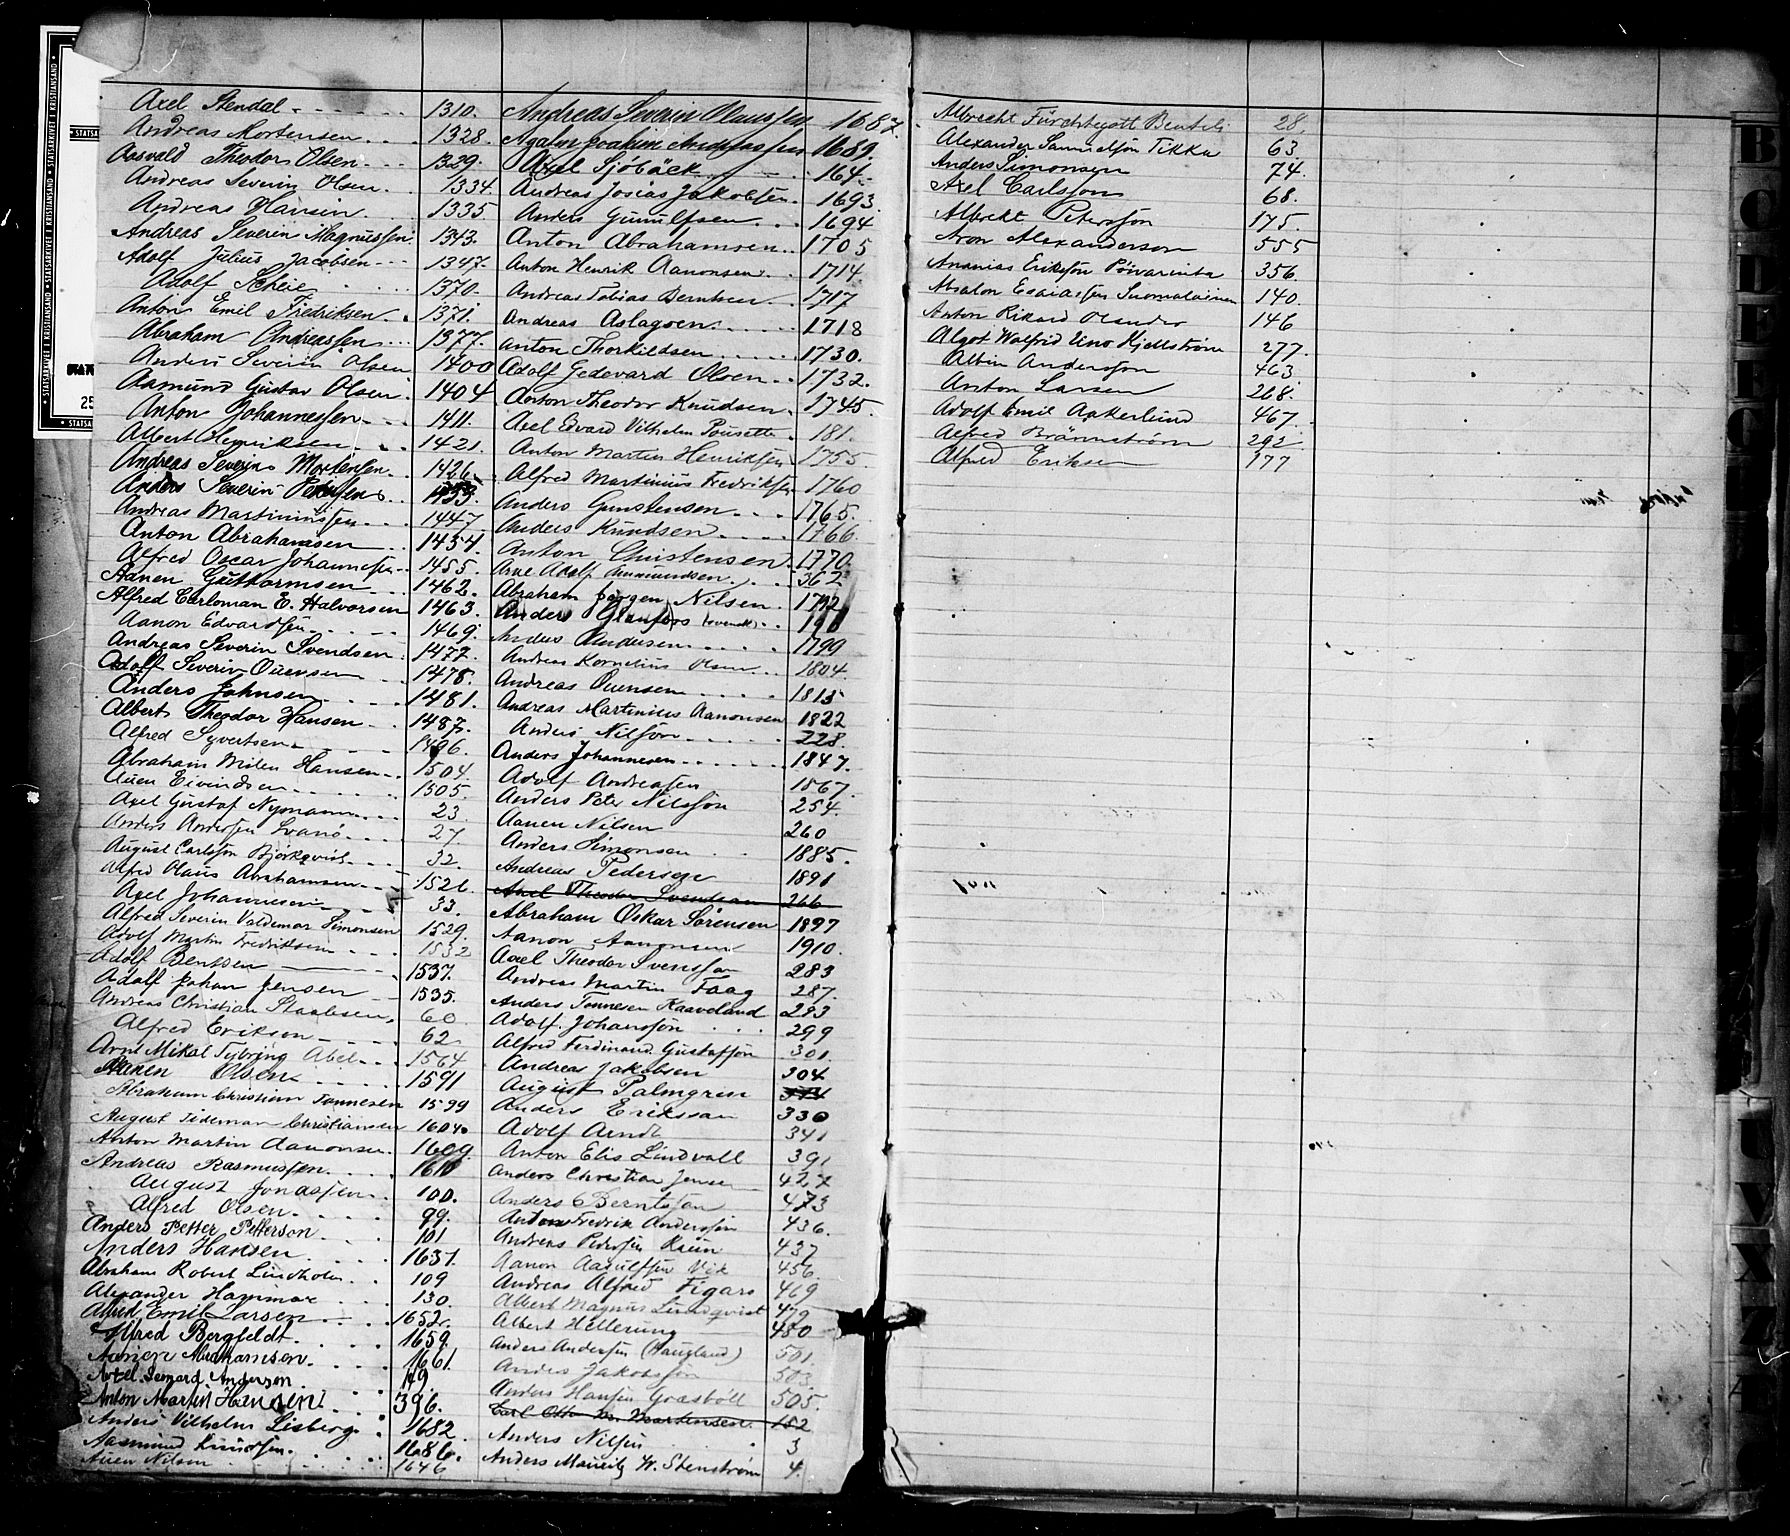 Axel Stendal 1310.
Andreas Mortensen 1328.
Aasvald Theodor Olsen 1329.
Andreas Severin Olsen 1334.
Andreas Hansen 1335
Andreas Severin Magnussen 1343.
Adolf Julius Jacobsen 1347.
Adolf Scheie 1370.
Anton Emil Fredriksen 1371.
Abraham Andreassen 1377.
Anders Severin Olsen 1400
Aamund Gustav Olsen 1404
Anton Johannessen 1411.
Albert Henriksen 1421.
Andreas Severin Mortensen 1426.
Anders Severin Petersen 1433.
Andreas Martiniussen 1447
Anton Abrahamsen 1454
Alfred Oscar Johannesen 1455.
Aanen Guttormsen 1462.
Alfred Carloman E. Halvorsen 1463.
Aanon Edvardsen 1469.
Andreas Severin Svendsen 1477.
Adolf Severin Ouensen 1478.
Anders Johnsen 1481.
Albert Theodor Hansen 1487.
Alfred Syvertsen 1496.
Abraham Milen Hansen 1504.
Auen Eivindsen 1505.
Axel Gustaf Nyman 23
Anders Andersen Svanö 27
August Carlsson Björkqvist 32
Alfred Olaus Abrahamsen 1526.
Axel Johannesen 33.
Alfred Severin Valdemar Simonsen 1529.
Adolf Martin Fredriksen 1532
Adolf Bentsen 1537.
Adolf Johan Jensen 1535.
Andreas Christian Staalesen 60
Alfred Erikson 62
Arnt Mikal Tybring Abel 1564
Aanen Olsen 1591
Abraham Christian Tonnesen 1599
August Tideman Christiansen 1604.
Anton Martin Aanonsen 1609.
Andreas Rasmussen 1610
August Jonassen 100.
Alfred Olsen 99.
Anders Petter Petterson 101
Anders Hansen 1631.
Abraham Robert Lindholm 109
Alexander Hammar 130.
Alfred Emil Larsen 1652.
Alfred Bergfeldt. 1659.
Aanen Abrahamsen 1661.
Axel Leonard Anderson 149.
Anton Martin Hansen 396.
Anders Vilhelm Lisberg 1682.
Aasmund Knudsen 1686.
Auen Nilsen 1646
Andreas Severin Olaussen 1687.
Agaton Joakim Andreassen 1689.
Axel Sjöbäck 164.
Andreas Josias Jakobsen 1693
Anders Gunulfsen 1694
Anton Abrahamsen 1705
Anton Henrik Aanonsen 1714.
Andreas Tobias Berntsen 1717
Andreas Aslagsen 1718
Anton Thorkildsen 1730.
Adolf Gedevard Olsen 1732.
Anton Theodor Knudsen 1745.
Axel Edvard Vilhelm Pousette 181.
Anton Martin Henriksen 1755.
Alfred Martinius Fredriksen 1760
Anders Gunstensen 1765.
Anders Knudsen 1766.
Anton Christensen 1770.
Arne Adolf Gunmundsen 362
Abraham Jørgen Nilsen 1792
Anders Glanfors (svensk)
Anders Andersen 1799
Andreas Kornelius Olsen 1804.
Andreas Ouensen 1815
Andreas Martinius Aanonsen 1822
Anders Nilsön 228.
Anders Johannesen 1847.
Adolf Andreasen 1567.
Anders Peter Nilsson 254.
Aanen Nilsen 260
Anders Simonsen 1885.
Andreas Pedersen 1891
Axel Theodor Svendsen 266
Abraham Oskar Sørensen 1897
Aanon Aanonsen 1910.
Axel Theodor Svensson 283
Andreas Martin Faag 287.
Anders Tønnesen Kaaveland 293
Adolf Johansson 299
Alfred Ferdinand Gustafson 301
Andreas Jakobsen 304
August Palmgren 314
Anders Eriksson 330
Adolf Arndt 341
Anton Elis Lindvall 391
Anders Christian Jensen 427
Anders Berntsson 473
Anton Fredrik Andersson 436.
Andreas Pedersen Kaun 437
Aanon Aasulfsen Vik 456
Andreas Alfred Figaro 469
Albert Magnus Lundqvist 479
Albert Hellerung 480
Anders Andersen (Haugland) 501
Anders Jakobsson 503
Anders Hansen Graaböll 505.
Carl Otto M. Martensen 152
Anders Nilsen 3
Anders Mauritz W. Stenström 4.
Albrecht Furchtegott Beuteli 28.
Alexander Samuelson Tikka 63.
Anders Simonsen 74.
Axel Carlsson 68.
Albrekt Petersson 175.
Aron Alexanderson 555
Ananias Eriksson Pöivarinta 356
Absalon Esaiassen Suomalainen 140.
Anton Rikard Olander 146
Algot Walfrid Uno Kjellström 277.
Albin Andersson 463
Anton Larsen 268.
Adolf Emil Aakerlund 467.
Alfred Brännström 292
Alfred Eriksen 177
STATSARKIVET I KRISTIANSAND
25
B
C
D
E
V
X
Z